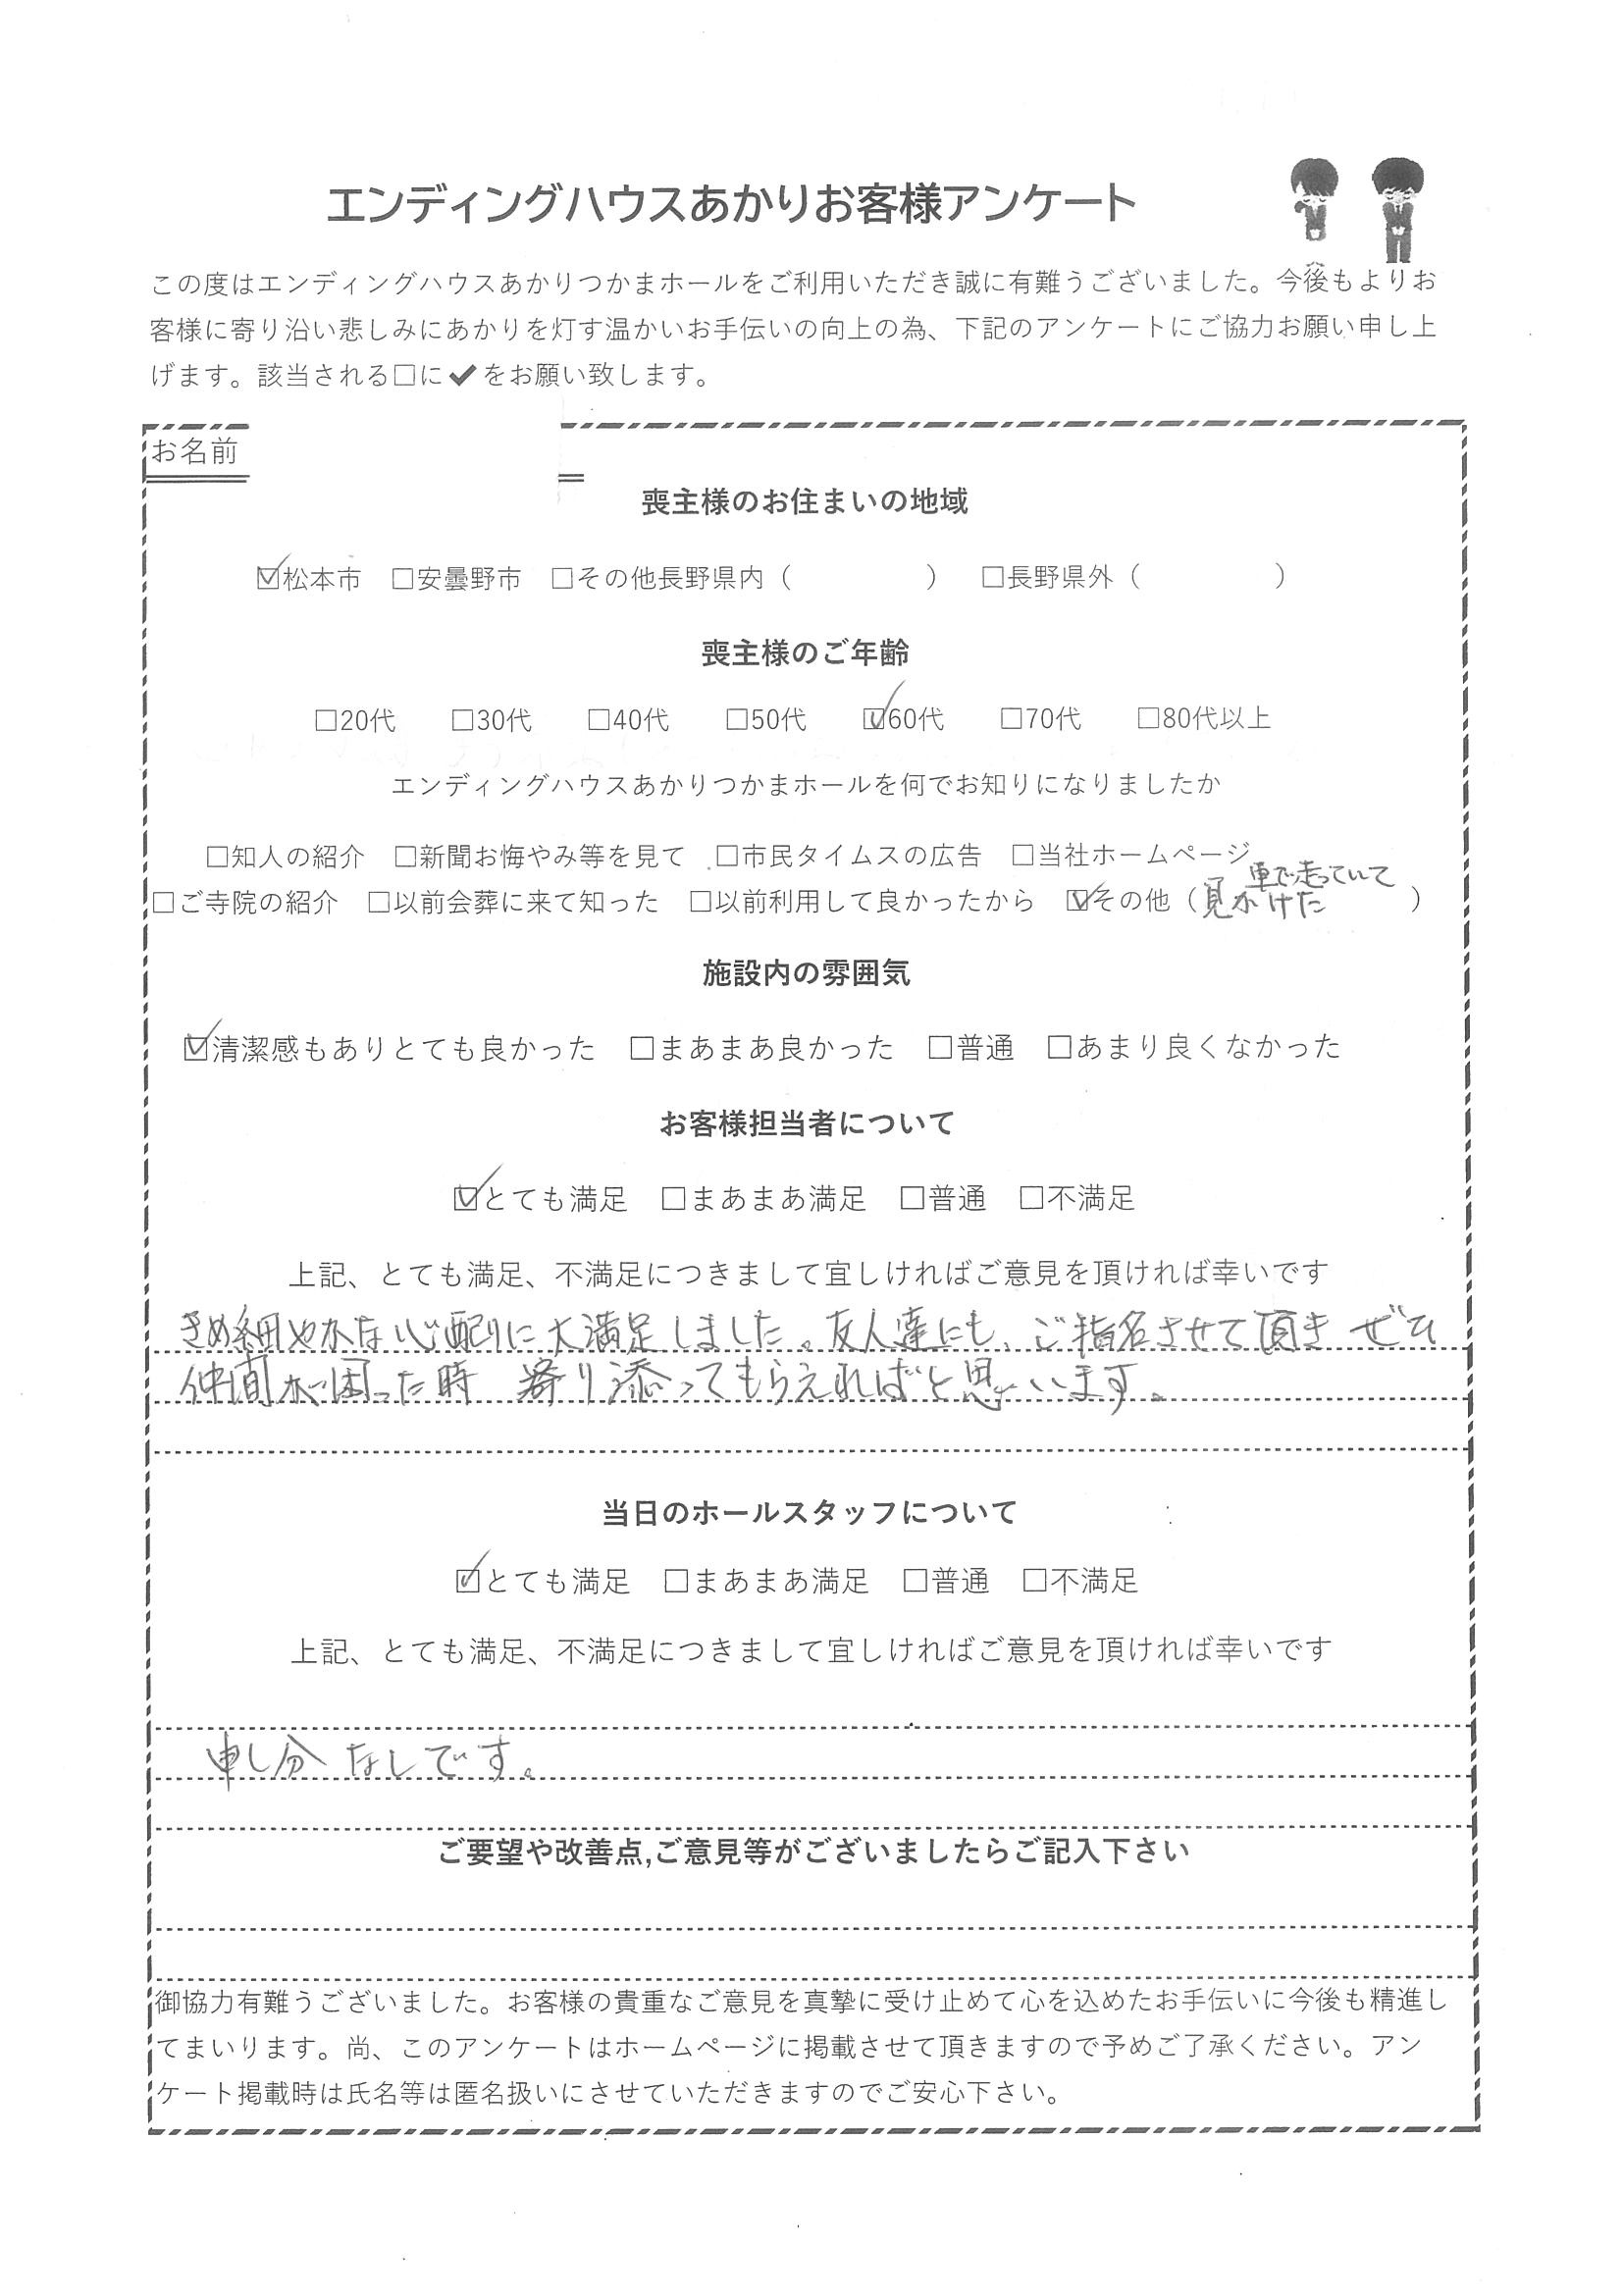 エンディングハウスあかりお客様アンケート
この度はエンディングハウスあかりつかまホールをご利用いただき誠に有難うございました。今後もよりお
客様に寄り沿い悲しみにあかりを灯す温かいお手伝いの向上の為、下記のアンケートにご協力お願い申し上
げます。該当される□に✔をお願い致します。
お名前
喪主様のお住まいの地域
☑松本市 □安曇野市 □その他長野県内（ ） □長野県外（ ）
喪主様のご年齢
□20代 □30代 □40代 □50代 ☑60代 □70代 □80代以上
エンディングハウスあかりつかまホールを何でお知りになりましたか
□知人の紹介 □新聞お悔やみ等を見て □市民タイムスの広告 □当社ホームページ
□ご寺院の紹介 □以前会葬に来て知った □以前利用して良かったから ☑その他（車で走っていて
見かけた ）
施設内の雰囲気
☑清潔感もありとても良かった □まあまあ良かった □普通 □あまり良くなかった
お客様担当者について
☑とても満足 □まあまあ満足 □普通 □不満足
上記、とても満足、不満足につきまして宜しければご意見を頂ければ幸いです
きめ細やかな心配りに大満足しました。友人達にも、ご指名させて頂き ぜひ
仲間が困った時 寄り添ってもらえればと思います。
当日のホールスタッフについて
☑とても満足 □まあまあ満足 □普通 □不満足
上記、とても満足、不満足につきまして宜しければご意見を頂ければ幸いです
申し分なしです。
ご要望や改善点,ご意見等がございましたらご記入下さい
御協力有難うございました。お客様の貴重なご意見を真摯に受け止めて心を込めたお手伝いに今後も精進し
てまいります。尚、このアンケートはホームページに掲載させて頂きますので予めご了承ください。アン
ケート掲載時は氏名等は匿名扱いにさせていただきますのでご安心下さい。